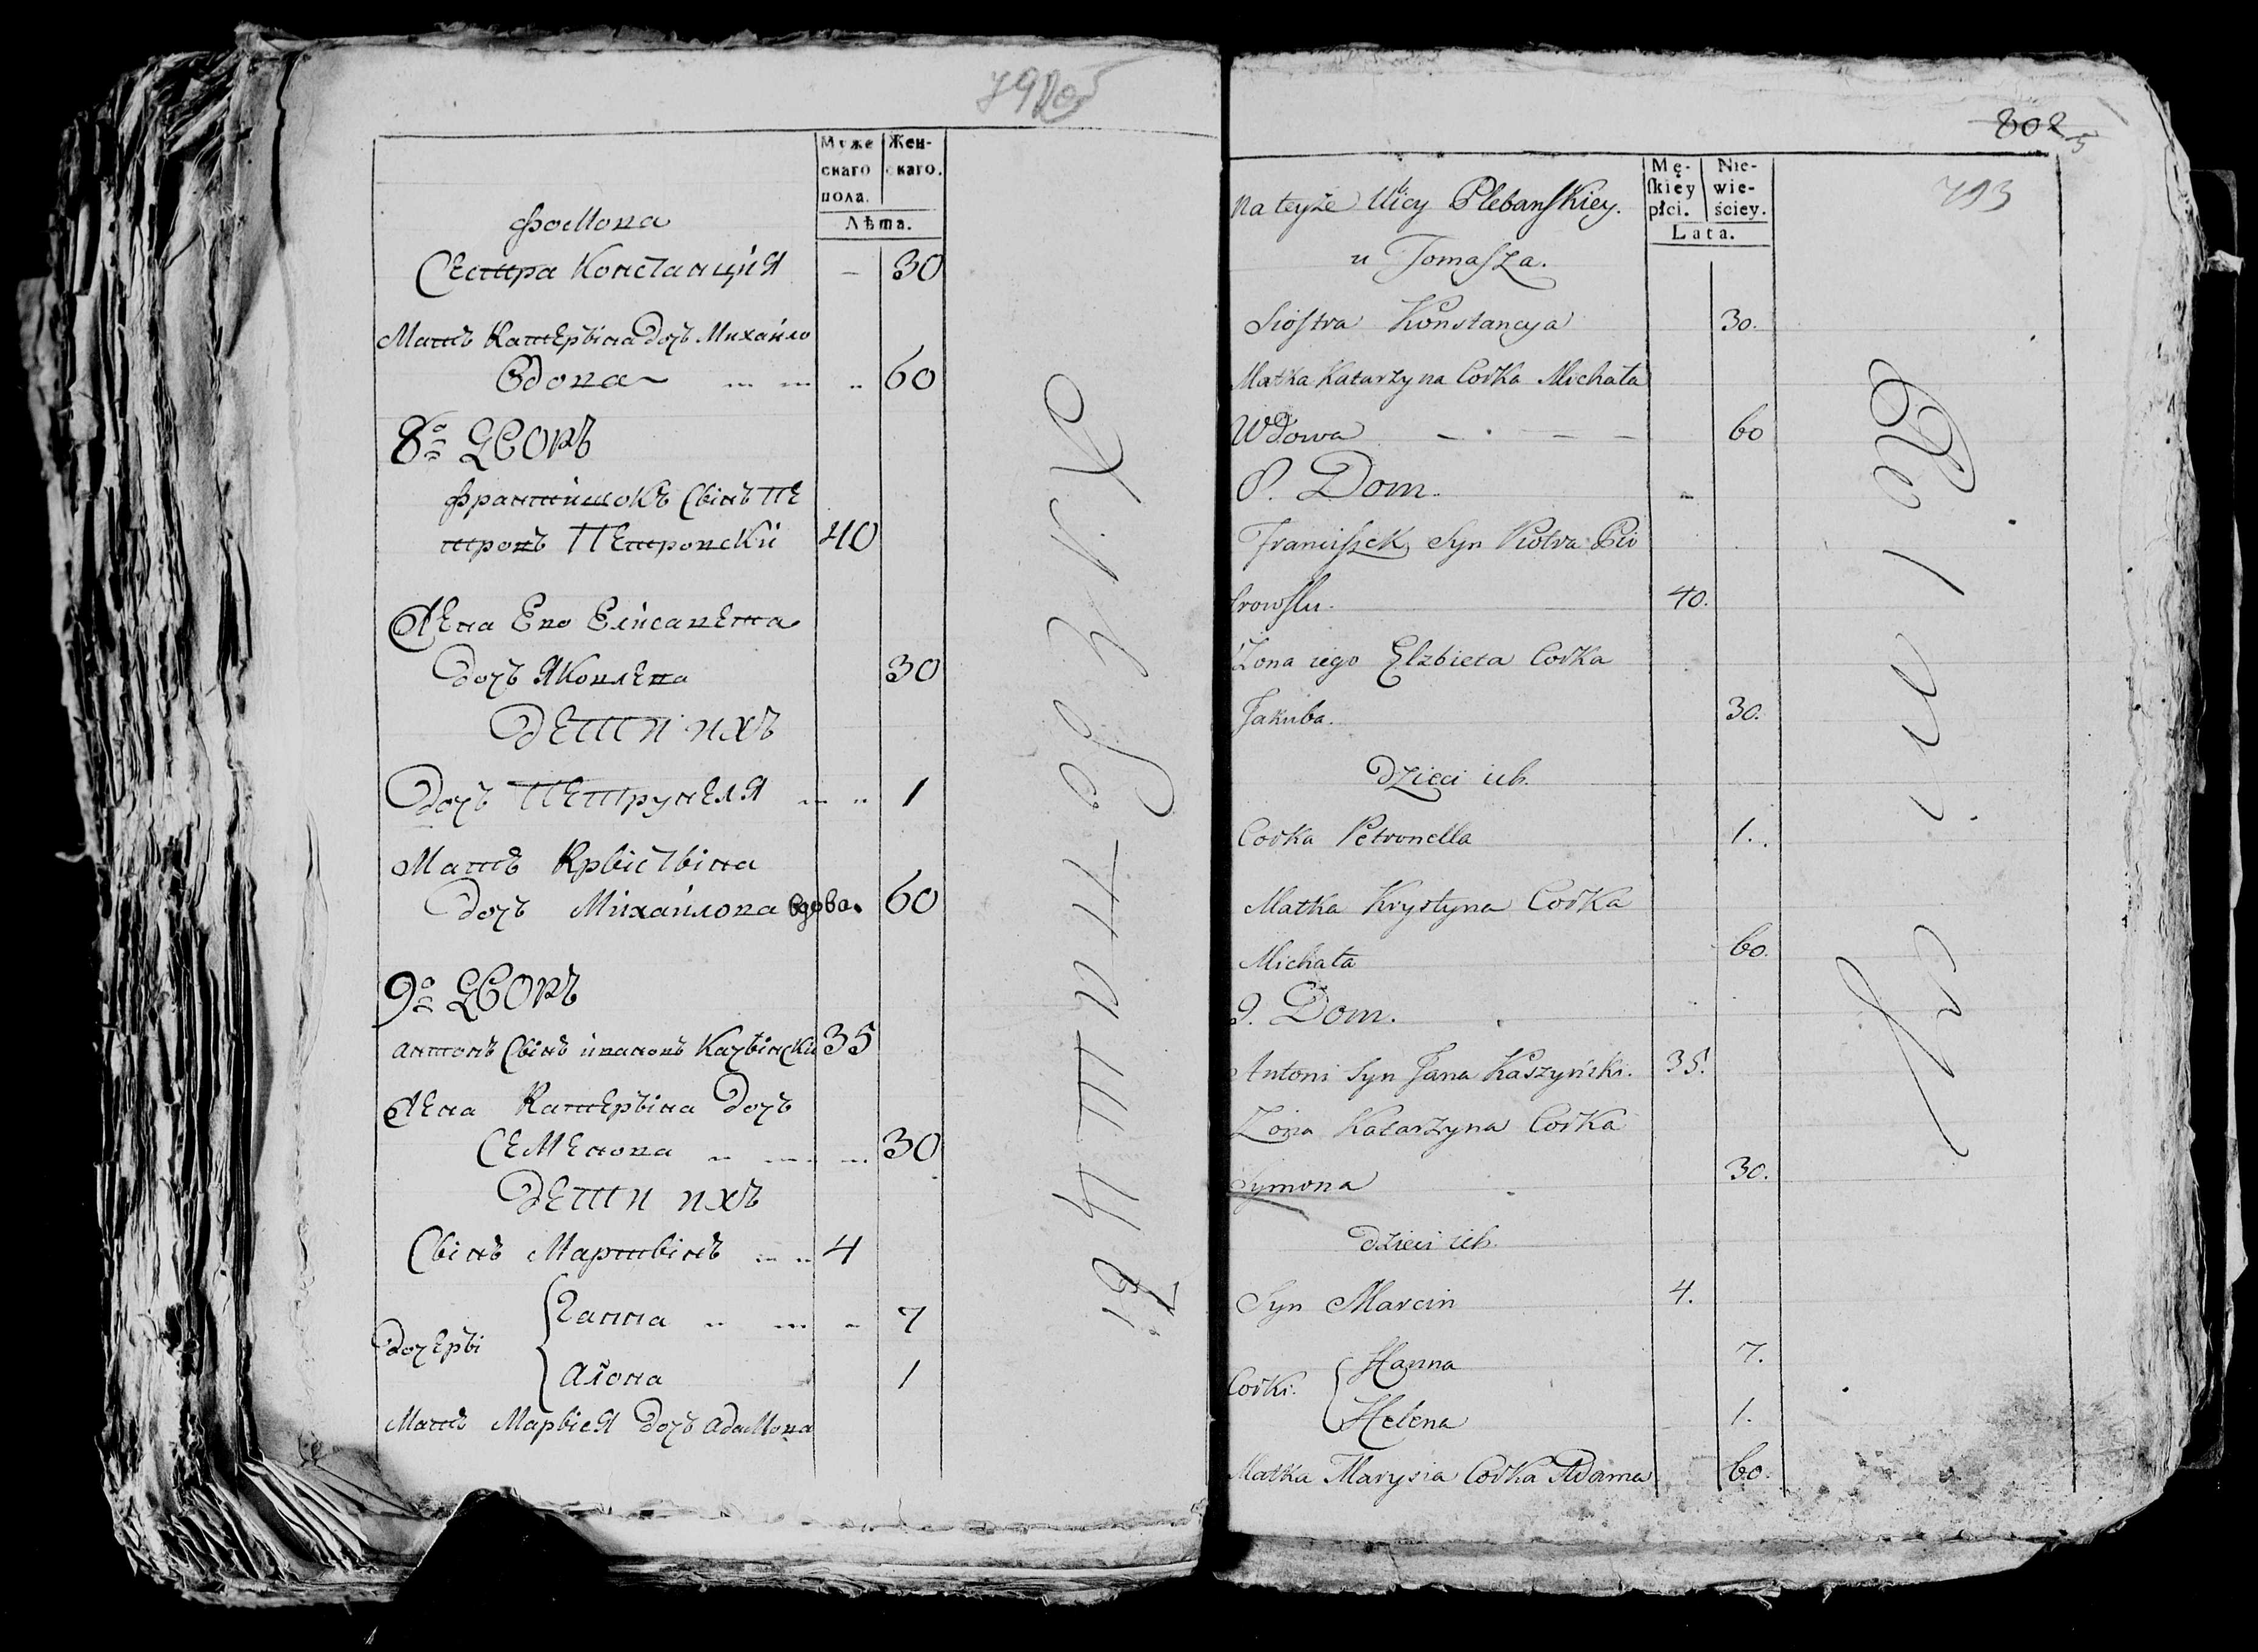 Муже
скаго
пола.
Жен-
скаго.
Лѣта.
Фомопа
Сестра Констанцiя - 30
Мать Катерына дочь Михайло
Вдова 60
8й дворъ
Францишокъ Сынъ Пе
тровъ Петровскй 40
Жена Ево Елисавета
дочь Яковлева 30
дети ихъ
дочь Петрунеля 1
Мать Крыстына
дочь Михайлова вдова. 60
9й дворъ
антонъ Сынъ ивановъ 35
Жена Катерына дочь
Семенова 30
дети ихъ
Сынъ Мартынъ 4
дочеры
Ганна 7
алона 1
Мать Марыся дочь адамова
802
5
793
Mę-
ſkiey
płci.
Nie-
wie-
ściey.
Lata.
Na teyże Ulicy Plebanſkiey.
u Tomaſza.
Sioſtra Konstancya 30.
Matka Katarzyna Corka Michała
Wdowa 60
8. Dom.
Franciſzek Syn Piotra Pio
trowſki. 40.
Żona iego Elzbieta Corka
Jakuba. 30.
dzieci ich.
Corka Petronella 1.
Matka Krystyna Corka
Michała 60.
9. Dom.
Antoni Syn Jana Kaszyński. 35.
Zona Katarzyna Corka
Symona 30.
dzieci ich.
Syn Marcin 4.
Corki.
Hanna 7.
Helena 1.
Matka Marysia Corka Adama 60.